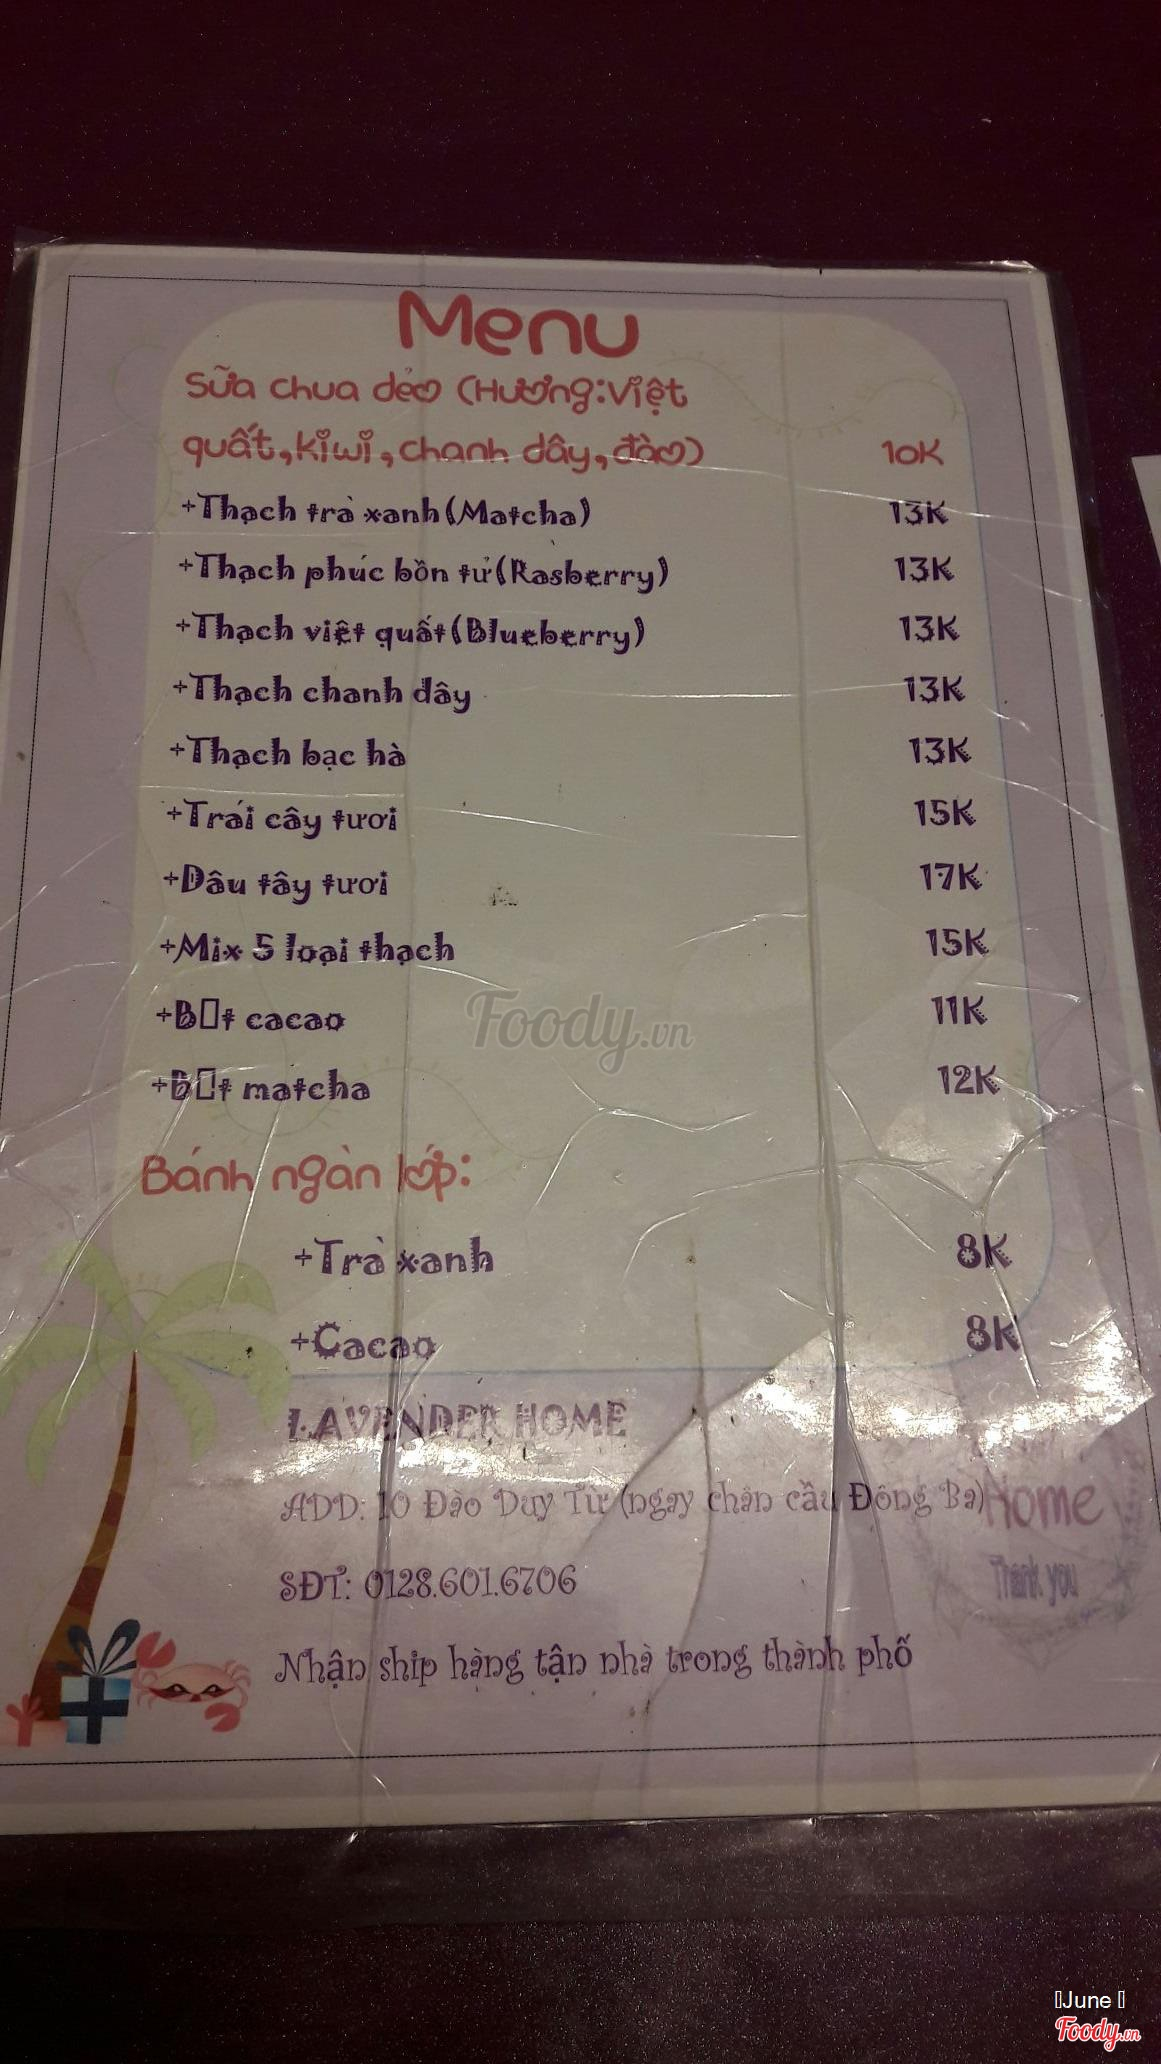 Menu
Sữa chua dẻo (Hương:Việt
quất,kiwi,chanh dây,đào) 10K
+Thạch trà xanh(Matcha) 13K
+Thạch phúc bồn tử(Rasberry) 13K
+Thạch việt quất(Blueberry) 13K
+Thạch chanh dây 13K
+Thạch bạc hà 13K
+Trái cây tươi 15K
+Dâu tây tươi 17K
+Mix 5 loại thạch 15K
+B▯t cacao 11K
+B▯t matcha 12K
Foody.vn
Bánh ngàn lớp:
+Trà xanh 8K
+Cacao 8K
LAVENDER HOME
ADD: 10 Đào Duy Từ (ngay chân cầu Đông Ba)
Home
Thank you
SĐT: 0128.601.6706
Nhận ship hàng tận nhà trong thành phố
▯June ▯
Foody.vn